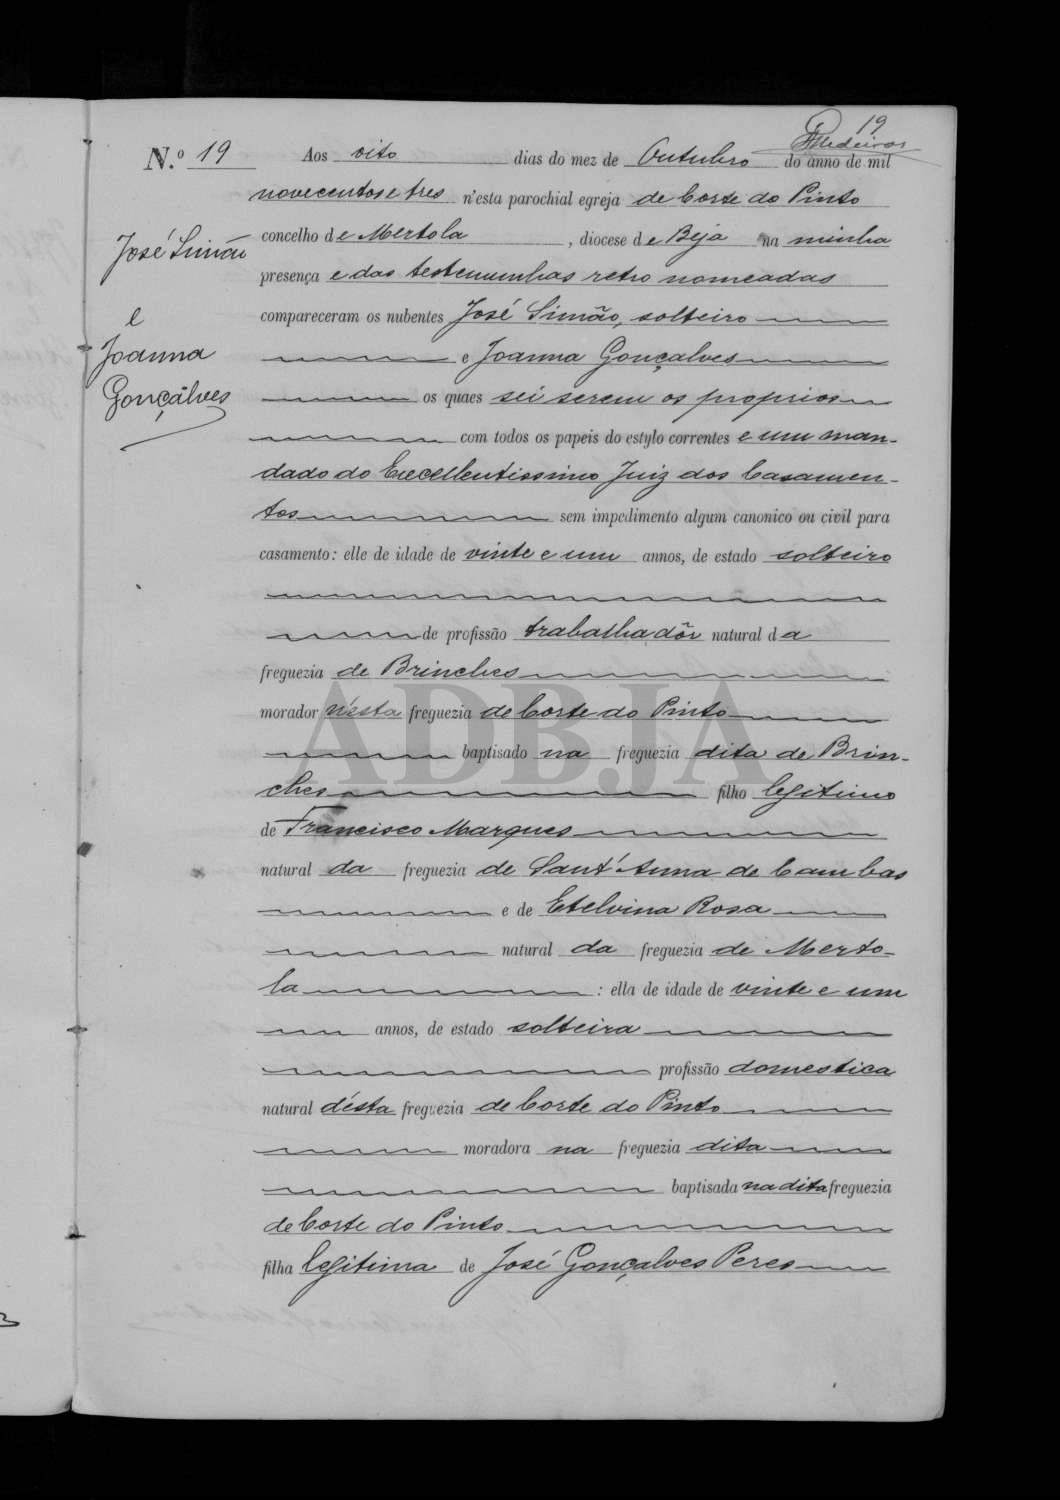 19
Medeiros
N.º 19 Aos oito dias do mez de Outubro do anno de mil
novecentos e tres n'esta parochial egreja de Corte do Pinto
José Simão
concelho de Mertola, diocese de Beja na minha
presença e das testemunhas retro nomeadas
e
compareceram os nubentes José Simão, solteiro
Joanna
e Joanna Gonçalves
Gonçálves
os quaes sei serem os proprios
com todos os papeis do estylo correntes e um man-
dado do Excellentissimo Juiz dos Casamen-
tos sem impedimento algum canonico ou civil para
casamento: elle de idade de vinte e um annos, de estado solteiro
de profissão trabalhadôr natural da
freguezia de Brinches
morador n'esta freguezia de Corte do Pinto
baptisado na freguezia dita de Brin-
ches filho legitimo
de Francisco Marques
natural da freguezia de Sant'Anna de Cambas
e de Etelvina Rosa
natural da freguezia de Merto-
la : ella de idade de vinte e um
annos, de estado solteira
profissão domestica
natural d'ésta freguezia de Corte do Pinto
moradora na freguezia dita
baptisada na dita freguezia
de Corte do Pinto
filha legitima de José Gonçalves Peres
ADBJA